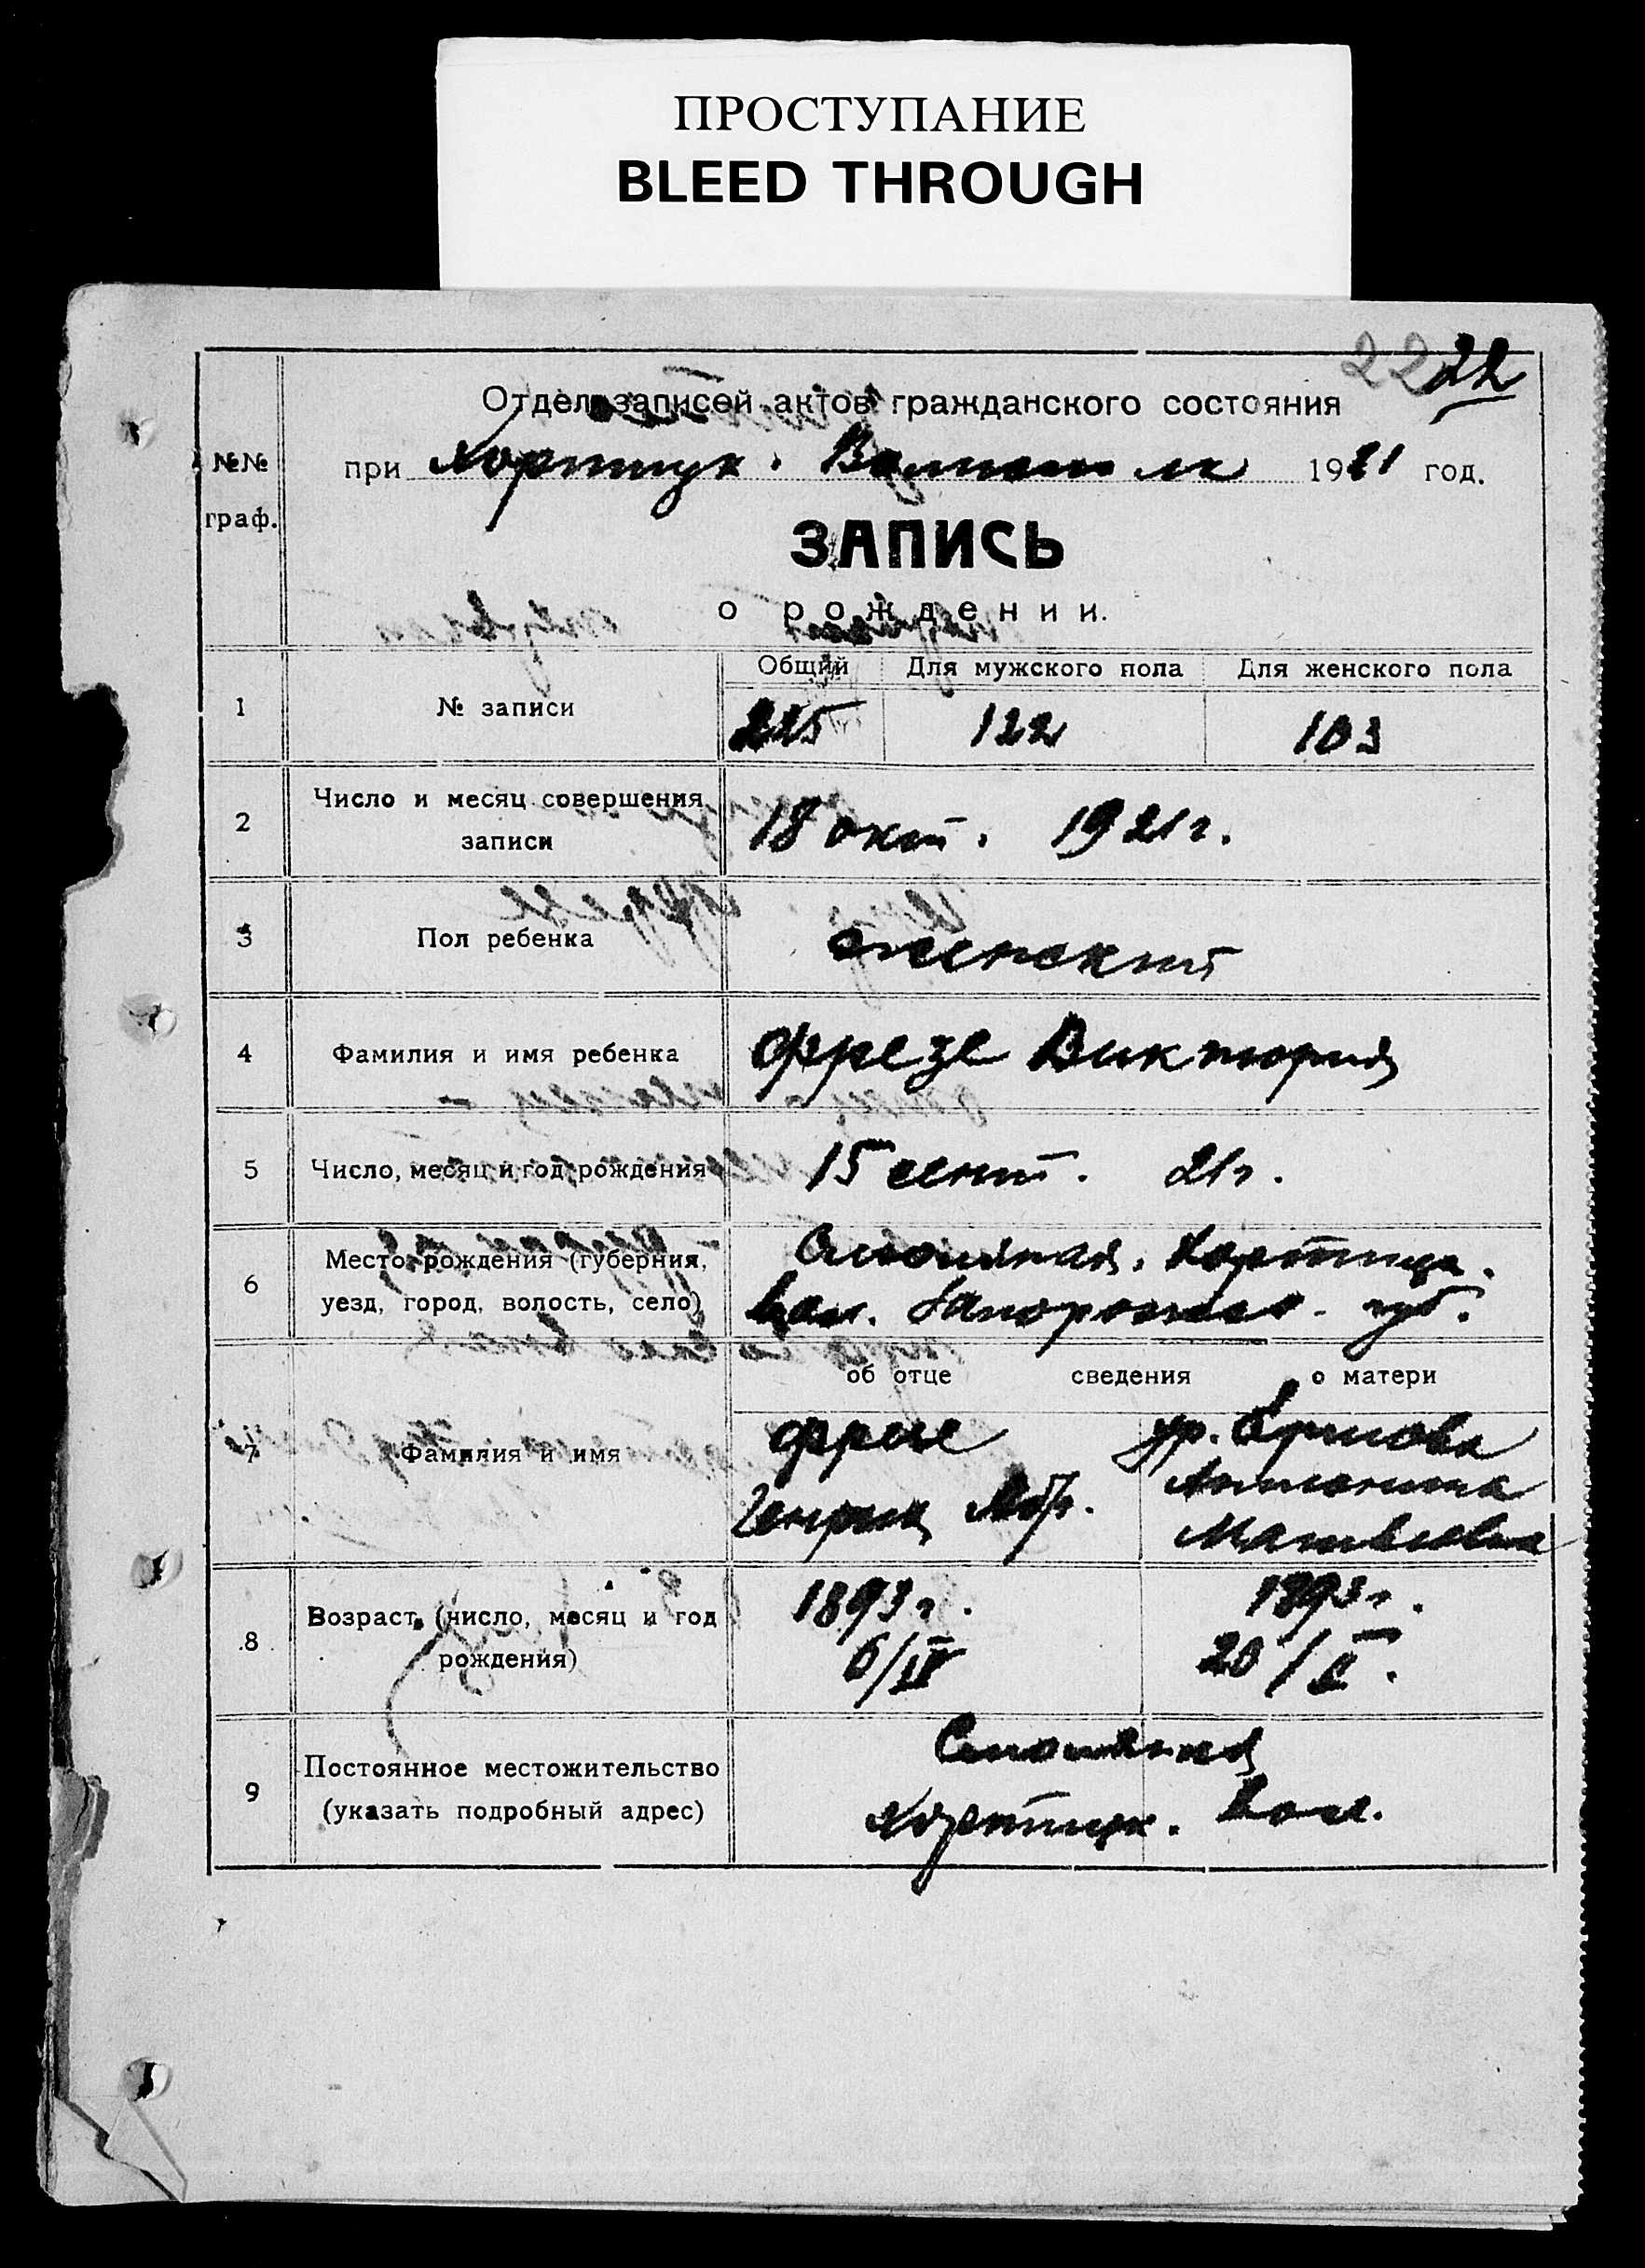 ПРОСТУПАНИЕ
BLEED THROUGH
22 22
Отдел записей актов гражданского состояния
№№ граф.
при Хортицк. 1921 год.
ЗАПИСЬ
о рождении.
Общий Для мужского пола Для женского пола
1 № записи 225 122 103
2 Число и месяц совершения
записи
18 окт. 1921 г.
3 Пол ребенка женский
4 Фамилия и имя ребенка Фрезе Виктория
5 Число, месяц и год рождения 15 сент. 21 г.
6 Место рождения (губерния,
уезд, город, волость, село)
Хортицк.
вол. Запорожск. губ.
об отце сведения о матери
7 Фамилия и имя
Фрезе
Генрих
ур.
Антонина
Матвеевна
8 Возраст (число, месяц и год
рождения)
1893 г. 1893 г.
6/IV 20/II.
9 Постоянное местожительство
(указать подробный адрес)
Хортицк. Вол.